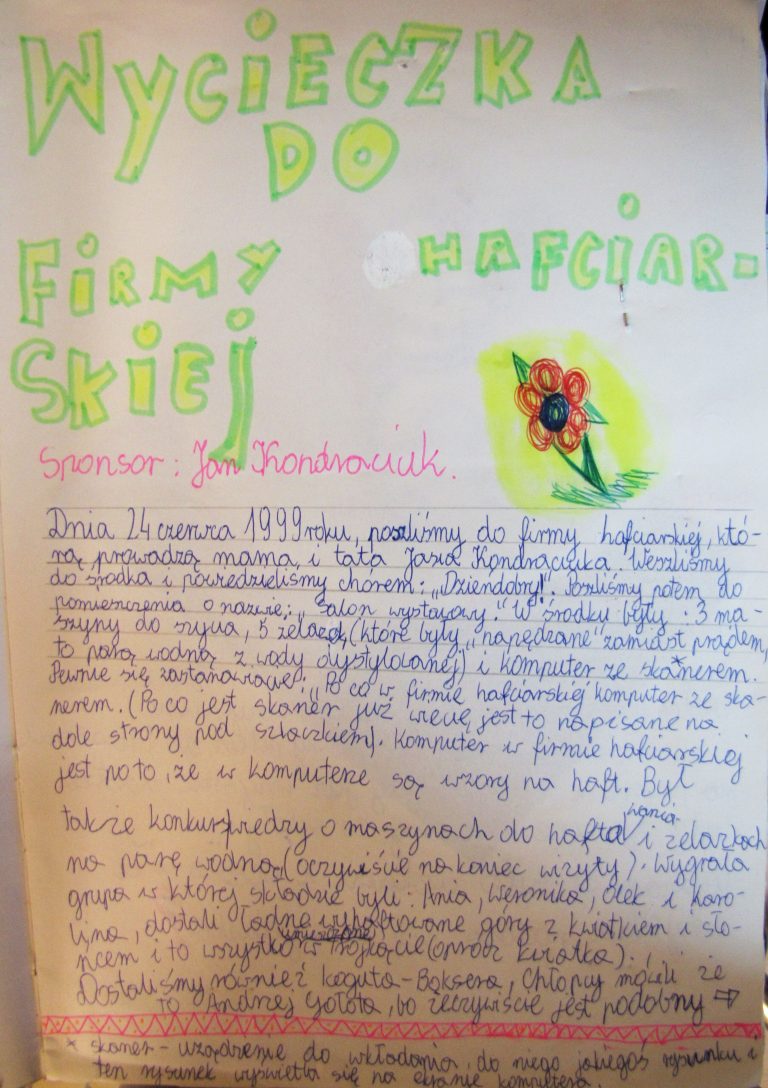 WYCIECZKA
DO
FIRMY HAFCIAR-
SKIEJ
Sponsor: Jan Kondraciuk.
Dnia 24 czerwca 1999 roku, poszliśmy do firmy hafciarskiej, któ-
rą prowadzą mama i tata Jasia Kondraciuka. Weszliśmy
do środka i powiedzieliśmy chórem: „Dzieńdobry!". Poszliśmy potem do
pomieszczenia o nazwie: „Salon wystawowy." W środku były: 3 ma-
szyny do szycia, 5 żelazek, (które były „napędzane" zamiast prądem,
to parą wodną z wody dystylowanej) i komputer ze skanerem.*
Pewnie się zastanawiacie: „Po co w firmie hafciarskiej komputer ze ska-
nerem. (Po co jest skaner już wiecię jest to napisane na
dole strony pod szlaczkiem). Komputer w firmie hafciarskiej
jest poto, że w komputerze są wzory na haft. Był
także konkurs wiedzy o maszynach do haftowania i żelazkach
na parę wodną (oczywiście na koniec wizyty). Wygrała
grupa w której składzie byli: Ania, Weronika, Olek i Karo-
lina, dostali ładne wyhaftowane góry z kwiatkiem i sło-
ńcem i to wszystko umieszczone w trójkącie (oprócz kwiatka).
Dostaliśmy również koguta-Boksera, Chłopcy mówili że
to Andrzej Gołota, bo rzeczywiście jest podobny ⇒
* skaner - urządzenie do wkładania, do niego jakiegoś rysunku i
ten rysunek wyświetla się na ekranie komputera